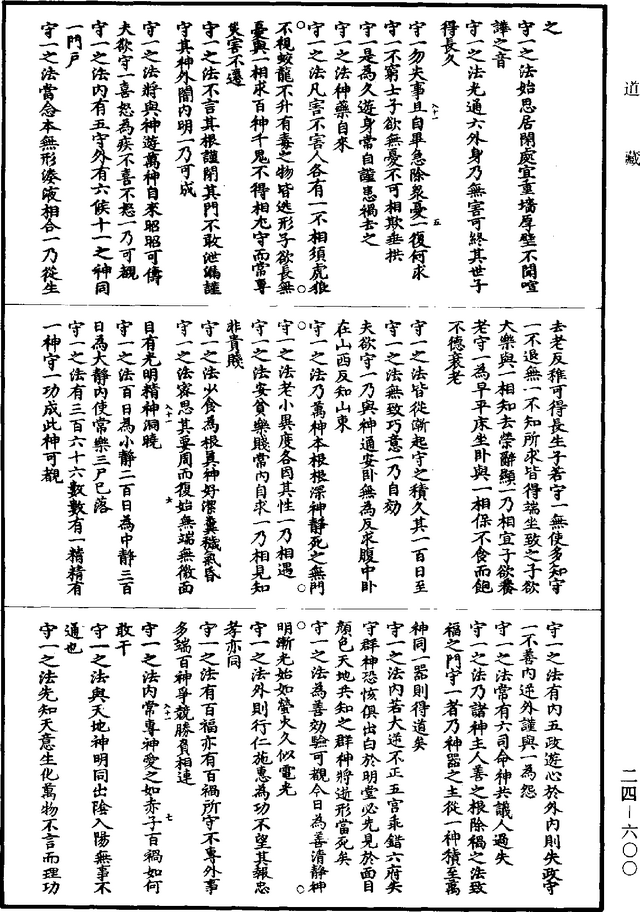 道藏
之
守一之法始思居閑處宜重墻厚壁不聞喧
譁之音
守一之法光通六外身乃無害可終其世子
得長久
守一勿失事且自畢急除衆憂一復何求
守一不窮士子欲無憂不可相欺垂拱
守一是為久遊身常自謹患禍去之
守一之法神藥自來
守一之法凡害不害人各有一不相須虎狼
不視蛟龍不升有毒之物皆逃形子欲長無
憂與一相求百神千鬼不得相尤守而常專
災害不遷
守一之法不言其根謹閉其門不敢泄漏謹
守其神外闇內明一乃可成
守一之法將與神遊萬神自來昭昭可儔
夫欲守一喜怒為疾不喜不怒一乃可覩
守一之法內有五守外有六候十一之神同
一門戶
守一之法當念本無形湊液相合一乃從生
去老反稚可得長生子若守一無使多知守
一不退無一不知所求皆得端坐致之子欲
大樂與一相知去榮辭顯一乃相宜子欲養
老守一為早平床坐卧與一相保不食而飽
不德衰老
守一之法皆從漸起守之積久其一百日至
守一之法無致巧意一乃自効
夫欲守一乃與神通安卧無為反求腹中卧
在山西反知山東
守一之法乃萬神本根根深神靜死之無門
守一之法老小異度各因其性一乃相遇
守一之法安貧樂賤常內自求一乃相見知
非貴賤
守一之法少食為根真神好潔糞穢氣昏
守一之法密思其要周而復始無端無徵面
目有光明精神洞曉
守一之法百日為小靜二百日為中靜三百
日為大靜內使常樂三尸已落
守一之法有三百六十六數數有一精精有
一神守一功成此神可覩
守一之法有內五政遊心於外內則失政守
一不善內逆外謹與一為怨
守一之法常有六司命神共議人過失
守一之法乃諸神主人善之根除禍之法致
福之門守一者乃神器之主從一神積至萬
神同一器則得道矣
守一之法內若大逆不正五宮乖錯六府失
守群神恐怯俱出白於明堂必先見於面目
顏色天地共知之群神將遊形當死矣
守一之法為善効驗可觀今日為善清靜神
明漸光始如螢火久似電光
守一之法外則行仁施惠為功不望其報忠
孝亦同
守一之法有百福亦有百禍所守不專外事
多端百神爭競勝負相連
守一之法內常專神愛之如赤子百禍如何
敢干
守一之法與天地神明同出陰入陽無事不
通也
守一之法先知天意生化萬物不言而理功
二四－六〇〇